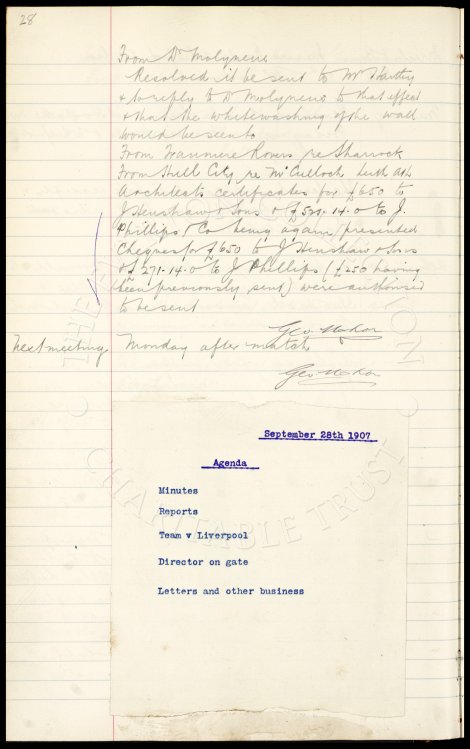 28
From Dr Molyneux
Resolved it be sent to Mr Hartley
& to reply to Dr Molyneux to that effect
& that the whitewashing of the wall
would be seen to
From Tranmere Rovers re Sharrock
From Hull City re McCulloch Leith Ath
Architects certificates for £650 to
J Henshaw & Sons & £521.14.0 to J.
Phillips & Co being again presented
Cheques for £650 to J Henshaw & Sons
& £271.14.0 to J Phillips (£250 having
been previously sent) were authorised
to be sent
Geo Mahon
Next meeting Monday after match
Geo Mahon
September 28th 1907
Agenda
Minutes
Reports
Team v Liverpool
Director on gate
Letters and other business
CHARITABLE TRUST